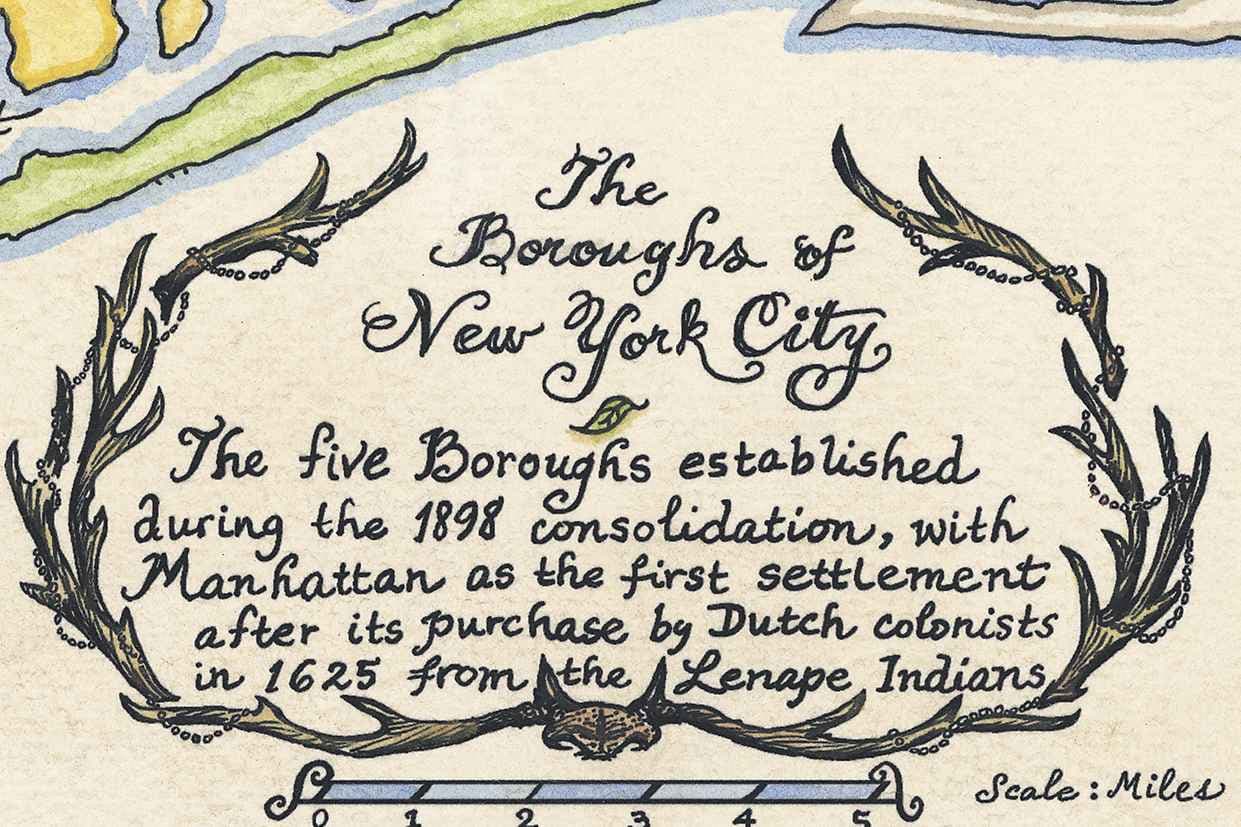 The
Boroughs of
New York City
The five Boroughs established
during the 1898 consolidation, with
Manhattan as the first settlement
after its purchase by Dutch colonists
in 1625 from the Lenape Indians
0 1 2 3 4 5
Scale: Miles